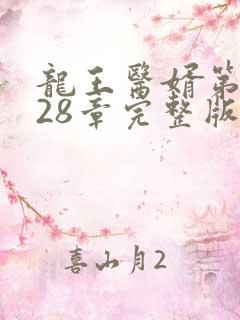 龍王醫婿第
28章完整版
喜山月2